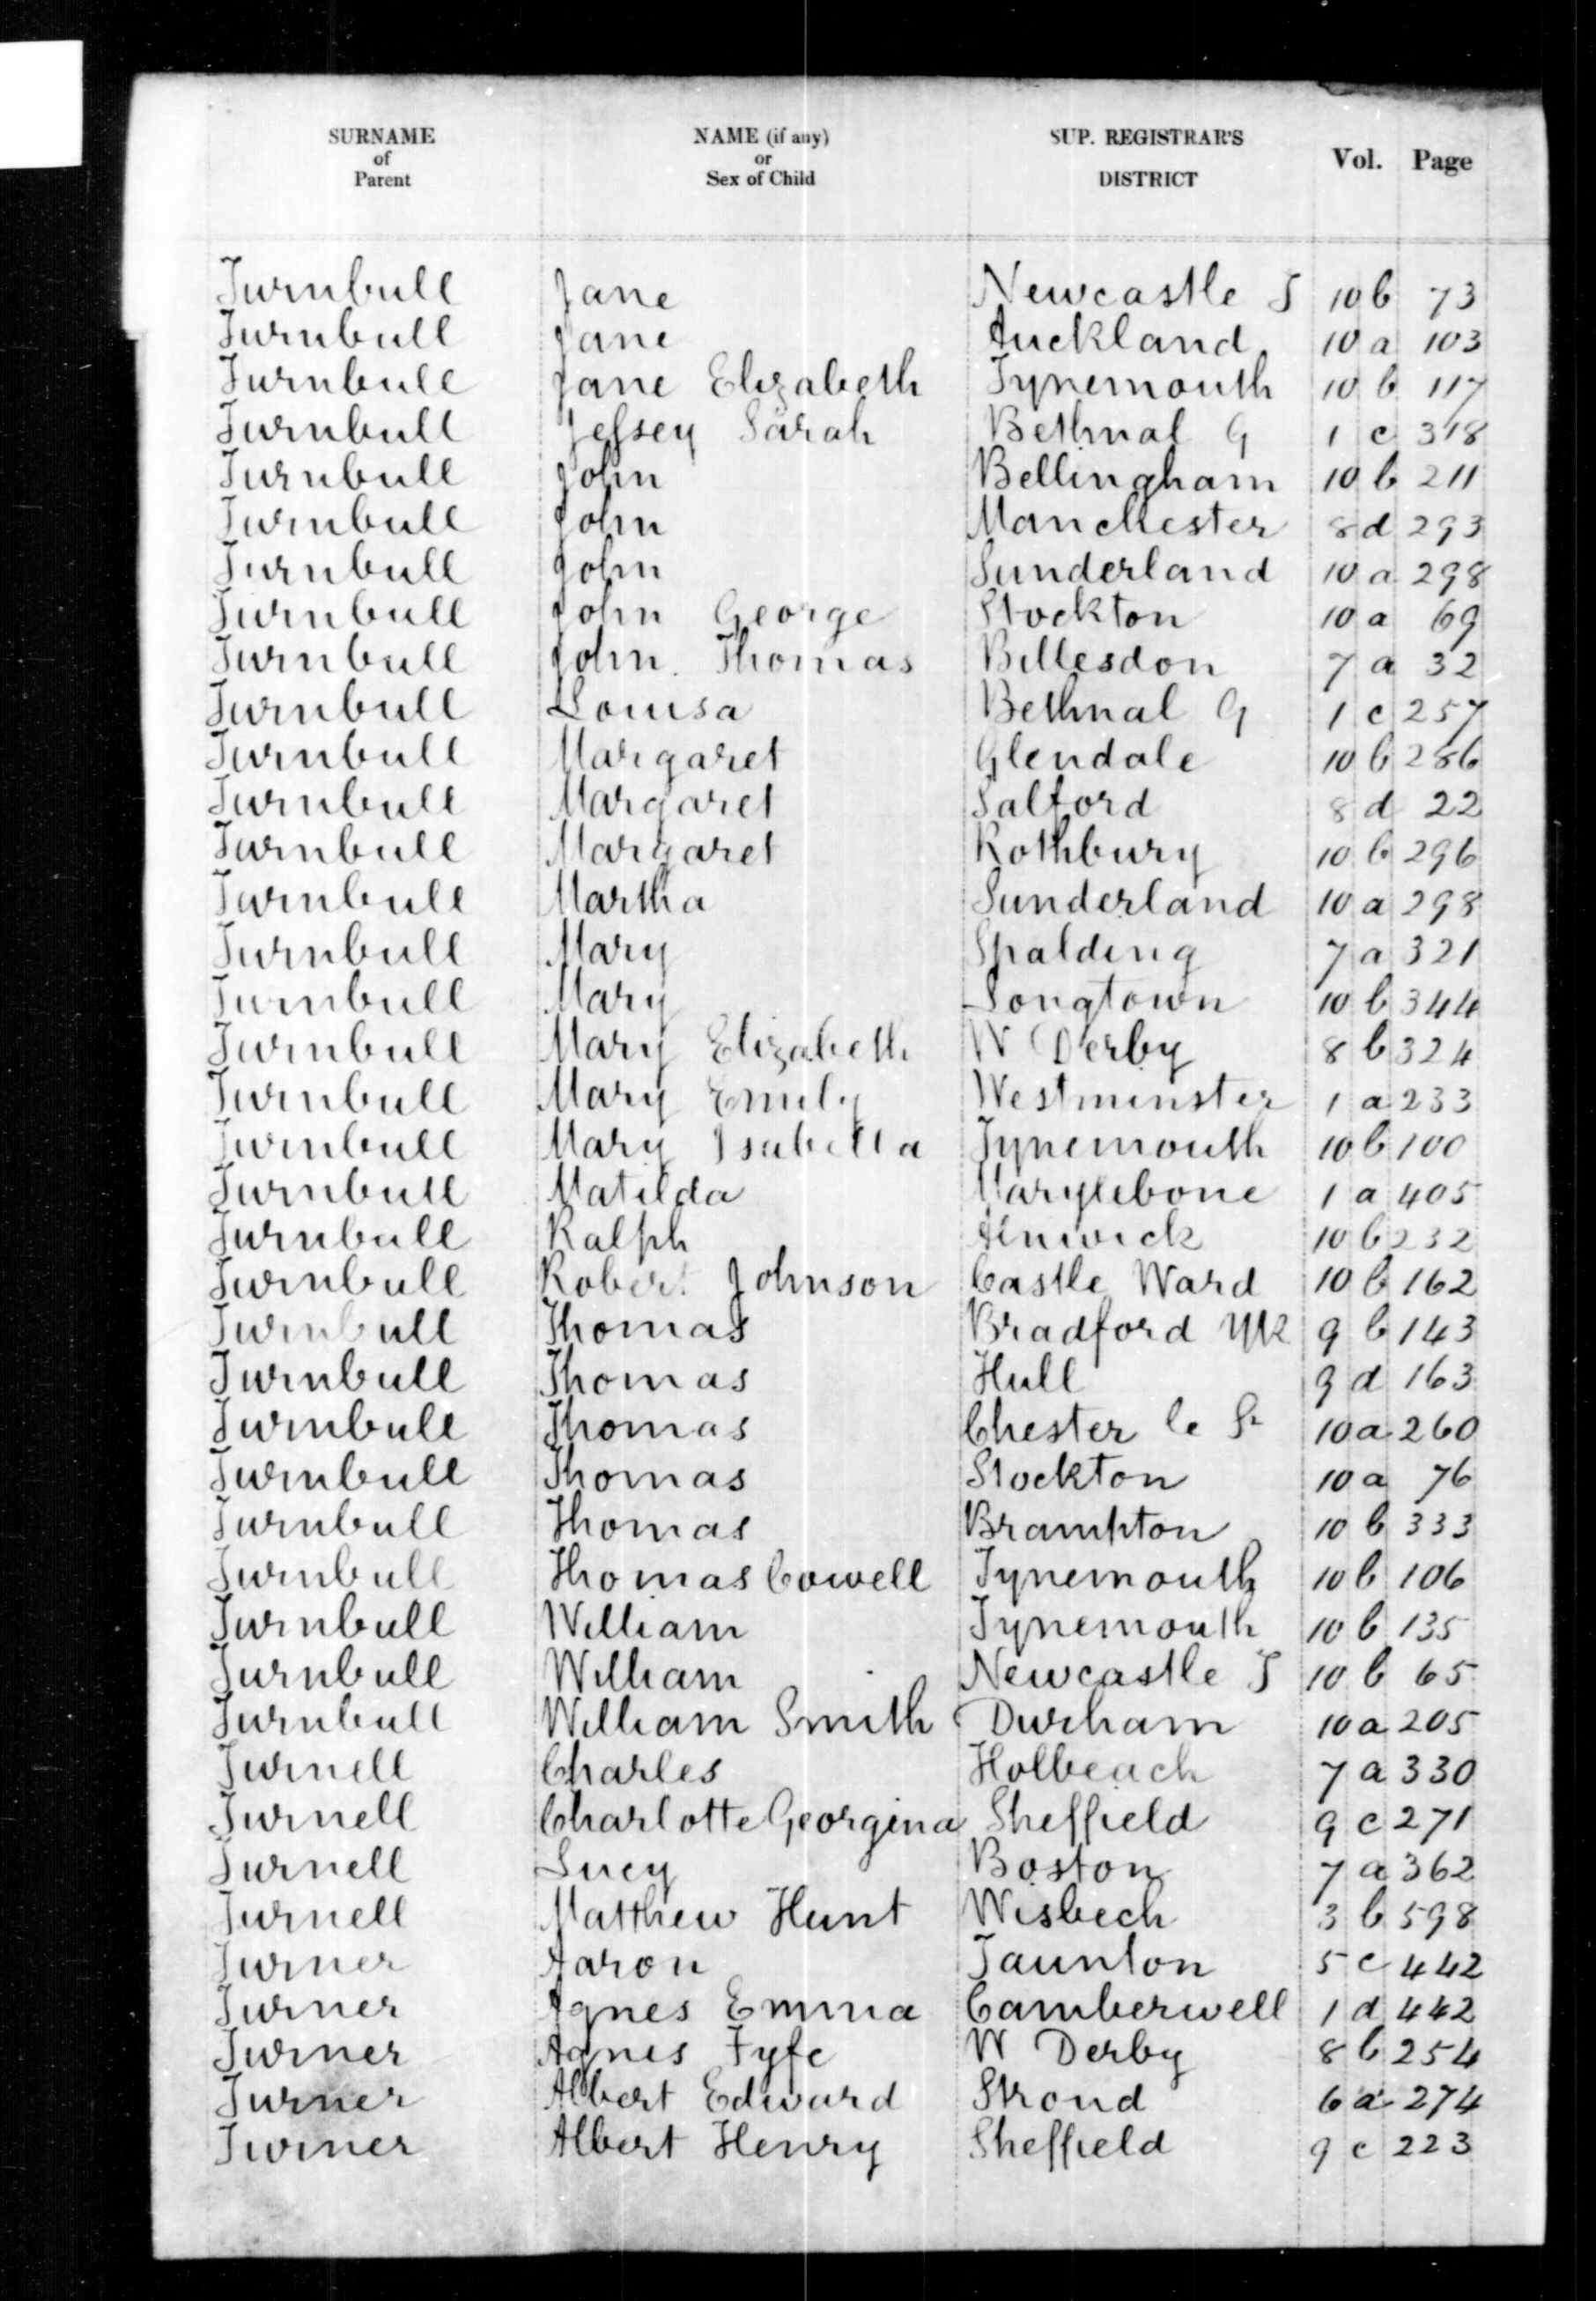 SURNAME of Parent NAME (if any) or Sex of Child SUP. REGISTRAR'S DISTRICT Vol. Page
Turnbull Jane Newcastle T 10 b 73
Turnbull Jane Auckland 10 a 103
Turnbull Jane Elizabeth Tynemouth 10 b 117
Turnbull Jessey Sarah Bethnal G 1 c 318
Turnbull John Bellingham 10 b 211
Turnbull John Manchester 8 d 293
Turnbull John Sunderland 10 a 298
Turnbull John George Stockton 10 a 69
Turnbull John Thomas Billesdon 7 a 32
Turnbull Louisa Bethnal G 1 c 257
Turnbull Margaret Glendale 10 b 286
Turnbull Margaret Salford 8 d 22
Turnbull Margaret Rothbury 10 b 296
Turnbull Martha Sunderland 10 a 298
Turnbull Mary Spalding 7 a 321
Turnbull Mary Longtown 10 b 344
Turnbull Mary Elizabeth W Derby 8 b 324
Turnbull Mary Emily Westminster 1 a 233
Turnbull Mary Isabella Tynemouth 10 b 100
Turnbull Matilda Marylebone 1 a 405
Turnbull Ralph Alnwick 10 b 232
Turnbull Robert Johnson Castle Ward 10 b 162
Turnbull Thomas Bradford Yk 9 b 143
Turnbull Thomas Hull 9 d 163
Turnbull Thomas Chester le St 10 a 260
Turnbull Thomas Stockton 10 a 76
Turnbull Thomas Brampton 10 b 333
Turnbull Thomas Cowell Tynemouth 10 b 106
Turnbull William Tynemouth 10 b 135
Turnbull William Newcastle T 10 b 65
Turnbull William Smith Durham 10 a 205
Turnell Charles Holbeach 7 a 330
Turnell Charlotte Georgina Sheffield 9 c 271
Turnell Lucy Boston 7 a 362
Turnell Matthew Hunt Wisbech 3 b 598
Turner Aaron Taunton 5 c 442
Turner Agnes Emma Camberwell 1 d 442
Turner Agnes Fyfe W Derby 8 b 254
Turner Albert Edward Stroud 6 a 274
Turner Albert Henry Sheffield 9 c 223